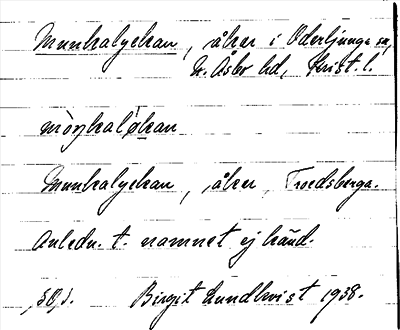 Munkalyckan, åker i Oderljunga sn,
N. Åsbo hd, Krist. l.
Munkalyckan, åker, Troedsberga.
Anledn. t. namnet ej känd.
Birgit Lundkvist 1938.